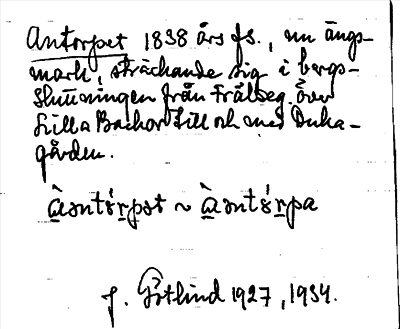 Antorpet 1838 års fs., nu ängs-
mark, sträckande sig i bergs-
sluttningen från Frälseg. över
Lilla Backor till och med Duka-
gården.
f. Götlind 1927, 1934.